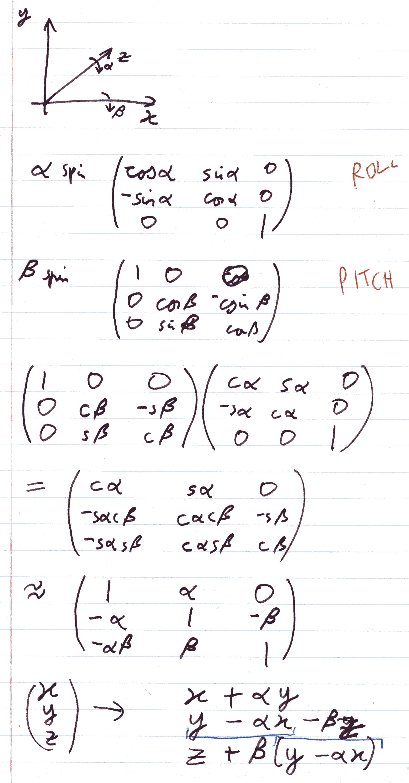 y
z
α
β
x
α spin ( cosα sinα 0 ROLL
-sinα cosα 0
0 0 1 )
β spin ( 1 0 0 PITCH
0 cosβ -sinβ
0 sinβ cosβ )
( 1 0 0 ) ( cα sα 0 )
( 0 cβ -sβ ) ( -sα cα 0 )
( 0 sβ cβ ) ( 0 0 1 )
= ( cα sα 0
-sαcβ cαcβ -sβ
-sαsβ cαsβ cβ )
≈ ( 1 α 0
-α 1 -β
-αβ β 1 )
( x y z ) → x + αy
y - αx - βz
z + β(y - αx)